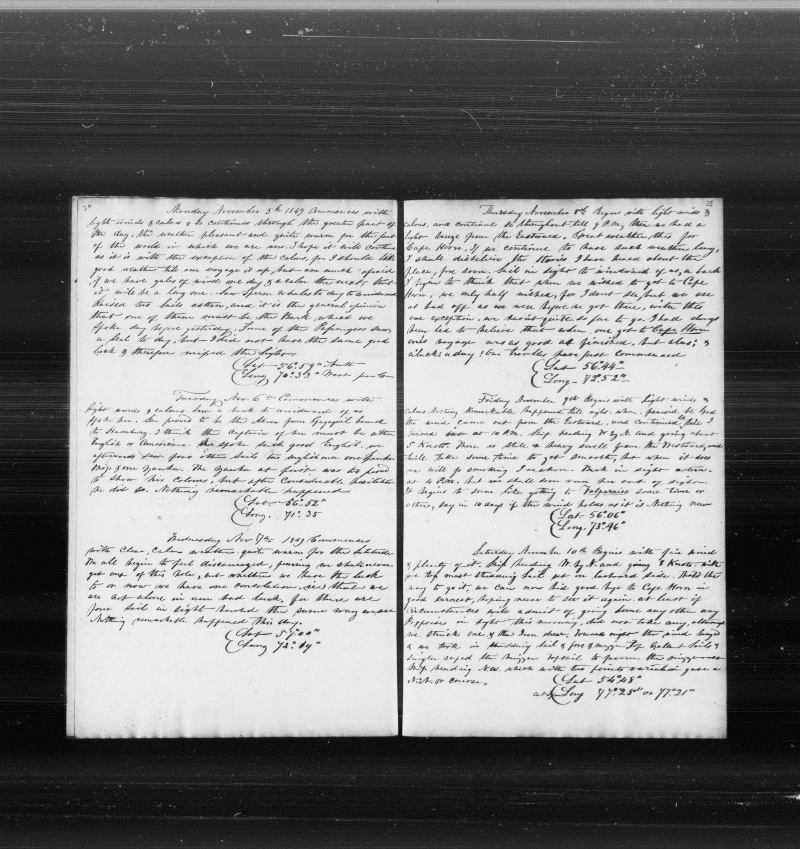 Monday November 5th 1849 Commences with
light winds & calms & so continues through the greater part of
the day, the weather pleasant and quite warm for the part
of the world in which we are now. I hope it will continue
as it is with the exception of the calms, for I should like
good weather till our voyage is up, but am much afraid
if we have gales of wind one day, & a calm the next, that
it will be a long one. Saw Sperm whales to day to windward
Raised two Sails astern, and it is the general opinion
that one of them must be the Bark which we
Spoke day before yestiday. Some of the Passengers saw
a Seal to day, but I did not have the same good
luck & therefore missed the Sight
Lat 56°.59" South
Long 70°.33" West
Tuesday Nov 6th Commences with
light winds & calms, Saw a bark to windward of us
Spoke her. She proved to be the from Guyaquil bound
to Hamburg. I think the Captain of her must be either
English or American, he spoke such good English. we
afterwards saw four other Sails two english one
Brigs & one Yankee. The Yankee at first was too proud
to Show his Colours, but after Considerable hesitation
he did so. Nothing remarkable happened
Lat 56°.52"
Long. 71°.35
Wednesday Nov 7th 1849 Commences
with Clear, Calm weather quite warm for the latitude
We all begin to feel discouraged, fearing we shall never
get out of this hole, but whether we have the luck
to or now we have one Consolation, that we
are not alone in our bad luck, for there are
four Sail in Sight bound the same way we are
Nothing remarkable happened this day.
Lat 57°.00"
Long 72°.09"
25
Thursday November 8th Begins with light winds &
calms. and continued so throughout till 9 P.M, then we had a
light breeze from the Eastward, Great weather this for
Cape Horn, If we continue to have such weather long,
I shall disbelieve the Stories I have heard about the
place, fore soon. Sail in Sight to windward of us, a bark
I begin to think that when we wished to get to Cape
Horn, we only half wished, for I dont See, but we are
as bad off, as we were before we got there, with this
one exception, we havent quite so far to go. I had always
been led to believe that when one got to Cape Horn
ones voyage was as good as finished, but alas! &
alackaday! Our troubles have just commenced
Lat 56°.44"
Long 73°.52"
Friday November 9th Begins with light winds &
calms Nothing Remarkable happened till night when, praised be God
the wind came out from the Eastward, and continued so till I
turned in at 10 P.M. Ship heading W by N and going about
5 Knots. There is still a heavy swell from the Westward, and
twill take some time to get smooth, but when it does
we will go smoking I reckon. Bark in sight astern
at 4 P.M. but we shall soon run her out of sight.
It begins to seem like getting to Valparaiso some time or
other, say in 10 days if the wind holds as it is Nothing new
Lat 56°.06"
Long. 75°.46"
Saturday November 10th Begins with fair wind
& plenty of it. Ship heading W. by N. and going 8 Knots. with
top mast studding Sail set on larboard side. Thats the
way to go it, we can now bid good bye to Cape Horn in
good earnest, hoping never to See it again, at least if
Circumstances will admit of going home any other way
Porpoises in Sight this morning, did not take any, although
we Struck one & the Iron drew. Towards night the wind
& we took in Studding Sail & fore & mizen Top Gallant Sails &
single reefed the Mizzen topsail
Ship heading N.W. which with two points variation gave a
N.N.W course.
Lat 54°.48"
Long 77°.25" or 77°.21"